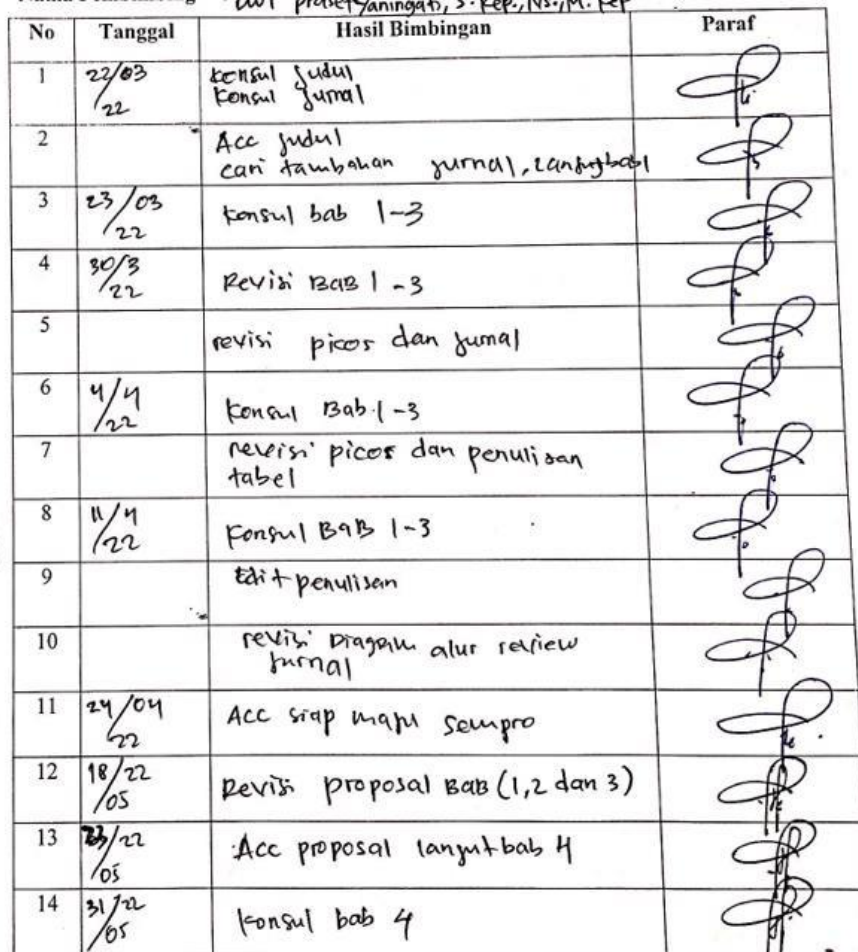 Prasetyaningati, S. Kep., Ns., M. Kep
No Tanggal Hasil Bimbingan Paraf
1 22/03/22 Konsul Judul
Konsul Jurnal
2 Acc Judul
cari tambahan jurnal, Lanjut bab 1
3 23/03/22 Konsul bab 1-3
4 30/3/22 Revisi BAB 1-3
5 revisi picos dan jurnal
6 4/4/22 Konsul Bab 1-3
7 revisi picos dan penulisan
tabel
8 11/4/22 Konsul BAB 1-3
9 Edit penulisan
10 revisi Diagram alur review
jurnal
11 24/04/22 Acc siap maju sempro
12 18/22/05 Revisi proposal BAB (1,2 dan 3)
13 /22/05 Acc proposal lanjut bab 4
14 31/22/05 Konsul bab 4